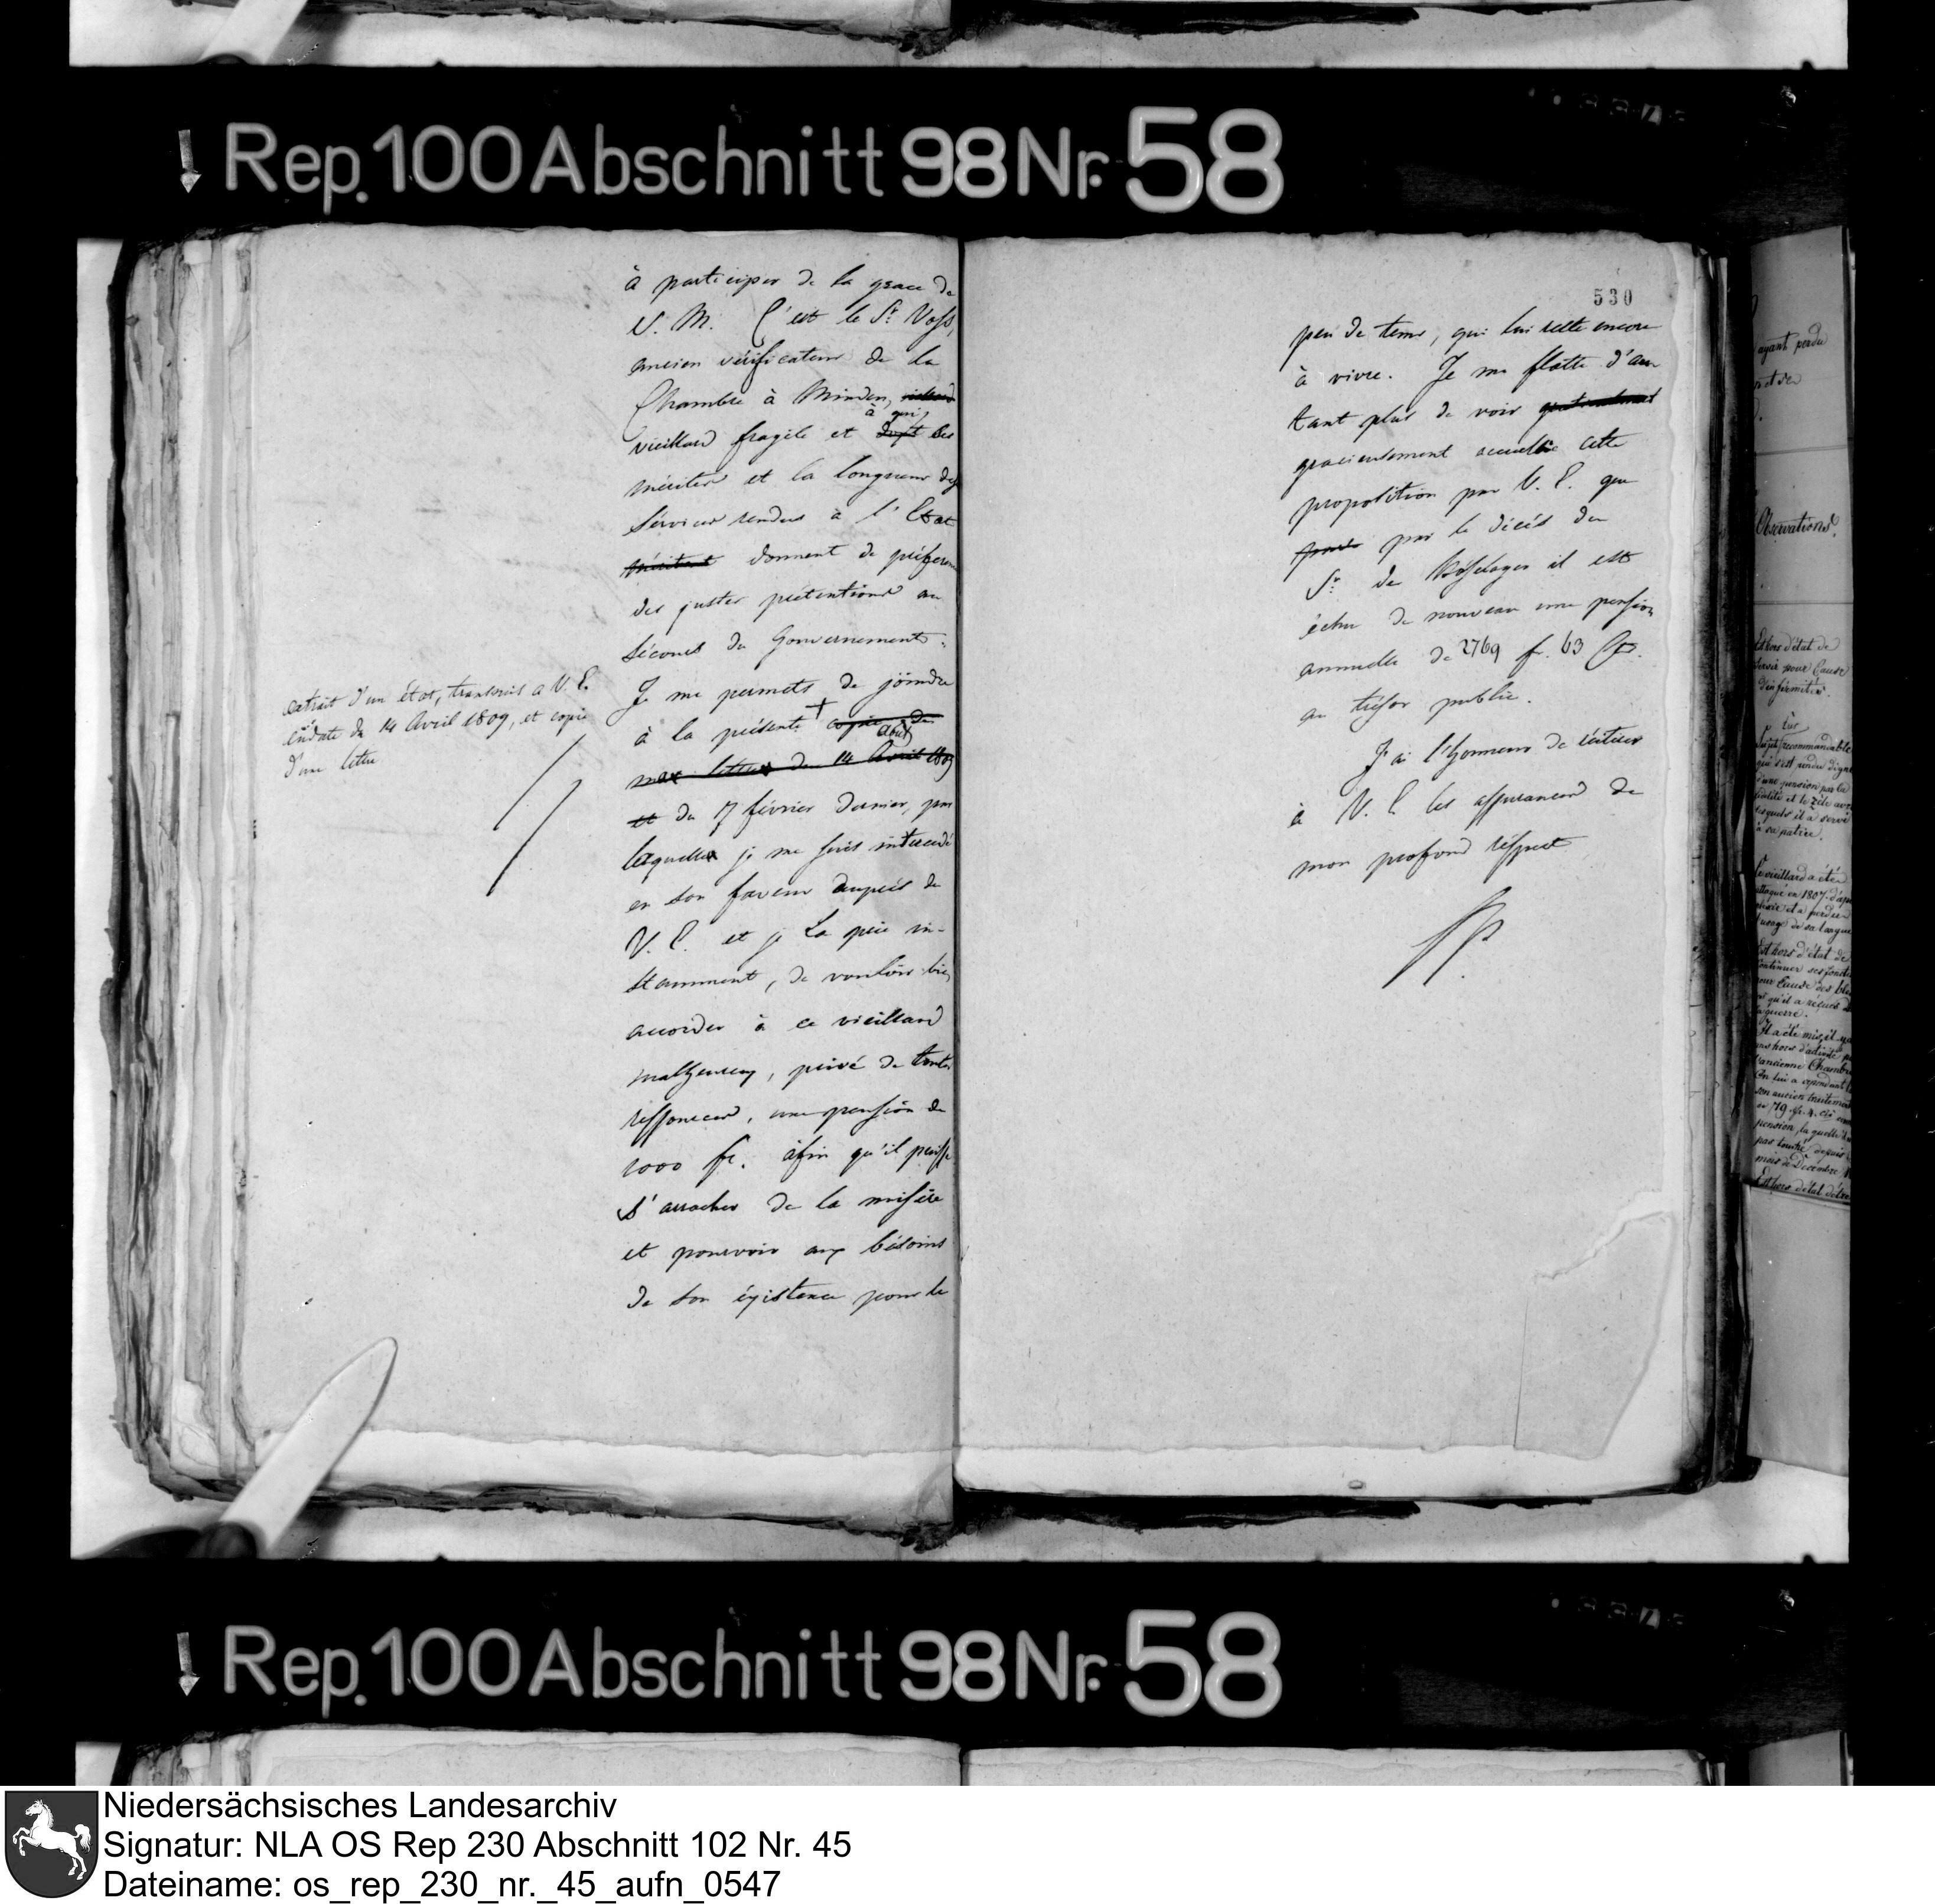 Rep. 100 Abschnitt 98 Nr. 58
à participer de la grace de
S. M. C'est le Sr. Voss,
ancien vérificateur de la
Chambre à Minden,
à qui
vieillard fragile et dont les
mérites et la longueur des
services rendus à l'Etat
méritent donnent de préference
des justes prétentions au
sécours du Gouvernement.
Je me permets de joindre
à la présente + copie de
mes lettres du 14 Avril 1809
et du 17 février dernier, par
laquelle je me suis intercedé
en son faveur auprès de
V. E. et je La prie in-
stamment, de vouloir bien
accorder à ce vieillard
malheureux, privé de toutes
ressources, une pension de
1000 fr. afin qu'il puisse
s'arracher de la misère
et pourvoir aux bésoins
de son existence pour le
extrait d'un état, transmis a V. E.
en date du 14 Avril 1809, et copie
d'une lettre
530
peu de tems, qui lui reste encore
à vivre. Je me flatte d'au
tant plus de voir
gracieusement accueillie cette
proposition par V. E. que
par le décès du
Sr. de Böselager il est
échu de nouveau une pension
annuelle de 2769 fr. 63 Cts.
au trésor public.
J'ai l'honneur de réiterer
à V. E. les assurances de
mon profond réspect
ayant perdu
Observations.
Est hors d'état de
servir pour cause
d'infirmités.
sujet recommandable
qui s'est rendu digne
d'une pension par la
fidélité et le zèle avec
lesquels il a servi
à sa patrie.
Ce vieillard a été
attaqué en 1807 d'apo
plexie et a perdu
l'usage de sa langue
Est hors d'état de
continuer ses fonctions
pour cause des bles
qu'il a reçues
guerre.
Il a été mis
hors d'activité
l'ancienne Chambre
On lui a cependant
son ancien traitement
pension, laquelle
pas touché depuis
mois de Decembre
Est hors d'état d'être
Rep. 100 Abschnitt 98 Nr. 58
Niedersächsisches Landesarchiv
Signatur: NLA OS Rep 230 Abschnitt 102 Nr. 45
Dateiname: os_rep_230_nr._45_aufn_0547